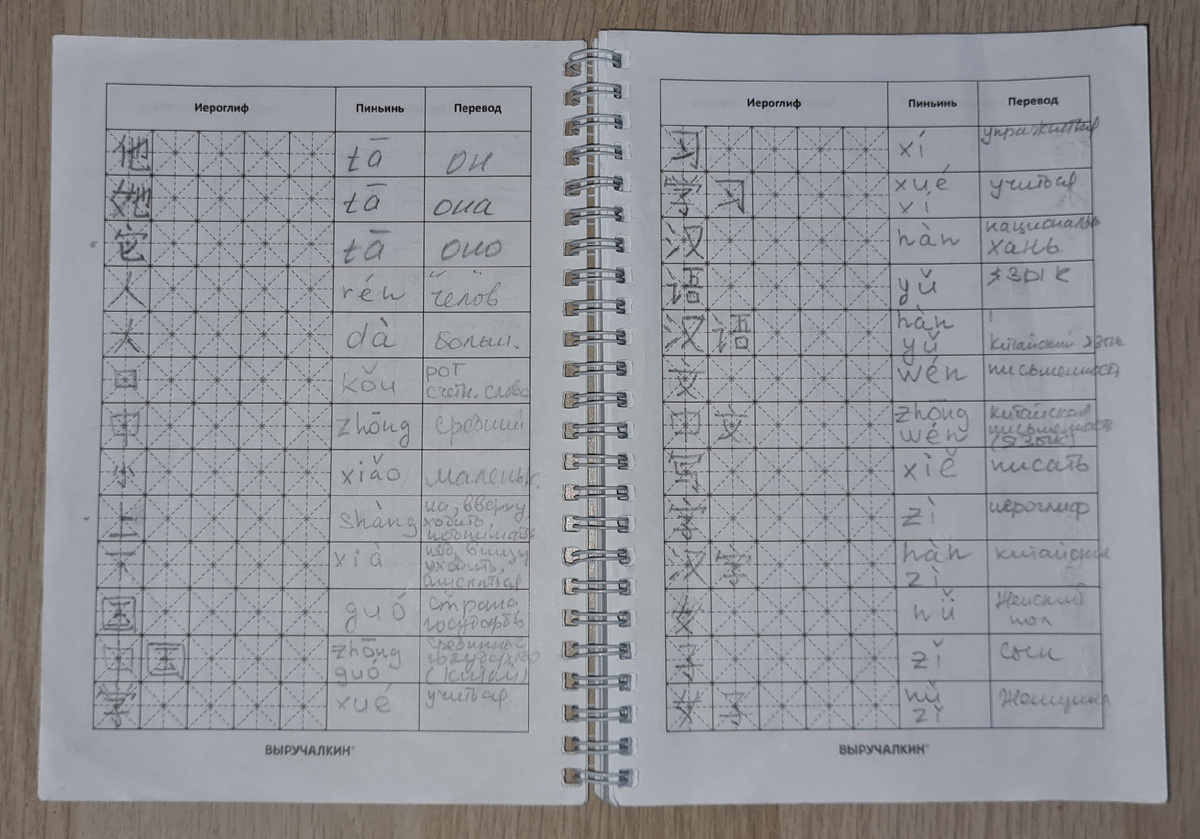 Иероглиф Пиньинь Перевод
他 tā он
她 tā она
它 tā оно
人 rén челов
大 dà больш.
口 kǒu рот
счетн. слово
中 zhōng средний
小 xiǎo маленьк.
上 shàng на, вверху
ходить,
подниматься
下 xià под, внизу
уходить,
спускаться
国 guó страна,
государство
中国 zhōng
guó государство
(Китай)
学 xué учиться
ВЫРУЧАЛКИН
Иероглиф Пиньинь Перевод
习 xí упражняться
学习 xué учиться
xí
汉 hàn националь
хань
语 yǔ язык
汉语 hàn
yǔ китайский язык
文 wén письменность
中文 zhōng китайская
wén письменность
(язык)
写 xiě писать
字 zì иероглиф
汉字 hàn китайские
zì
女 nǚ женский
пол
子 zǐ сын
女子 nǚ женщина
zǐ
ВЫРУЧАЛКИН